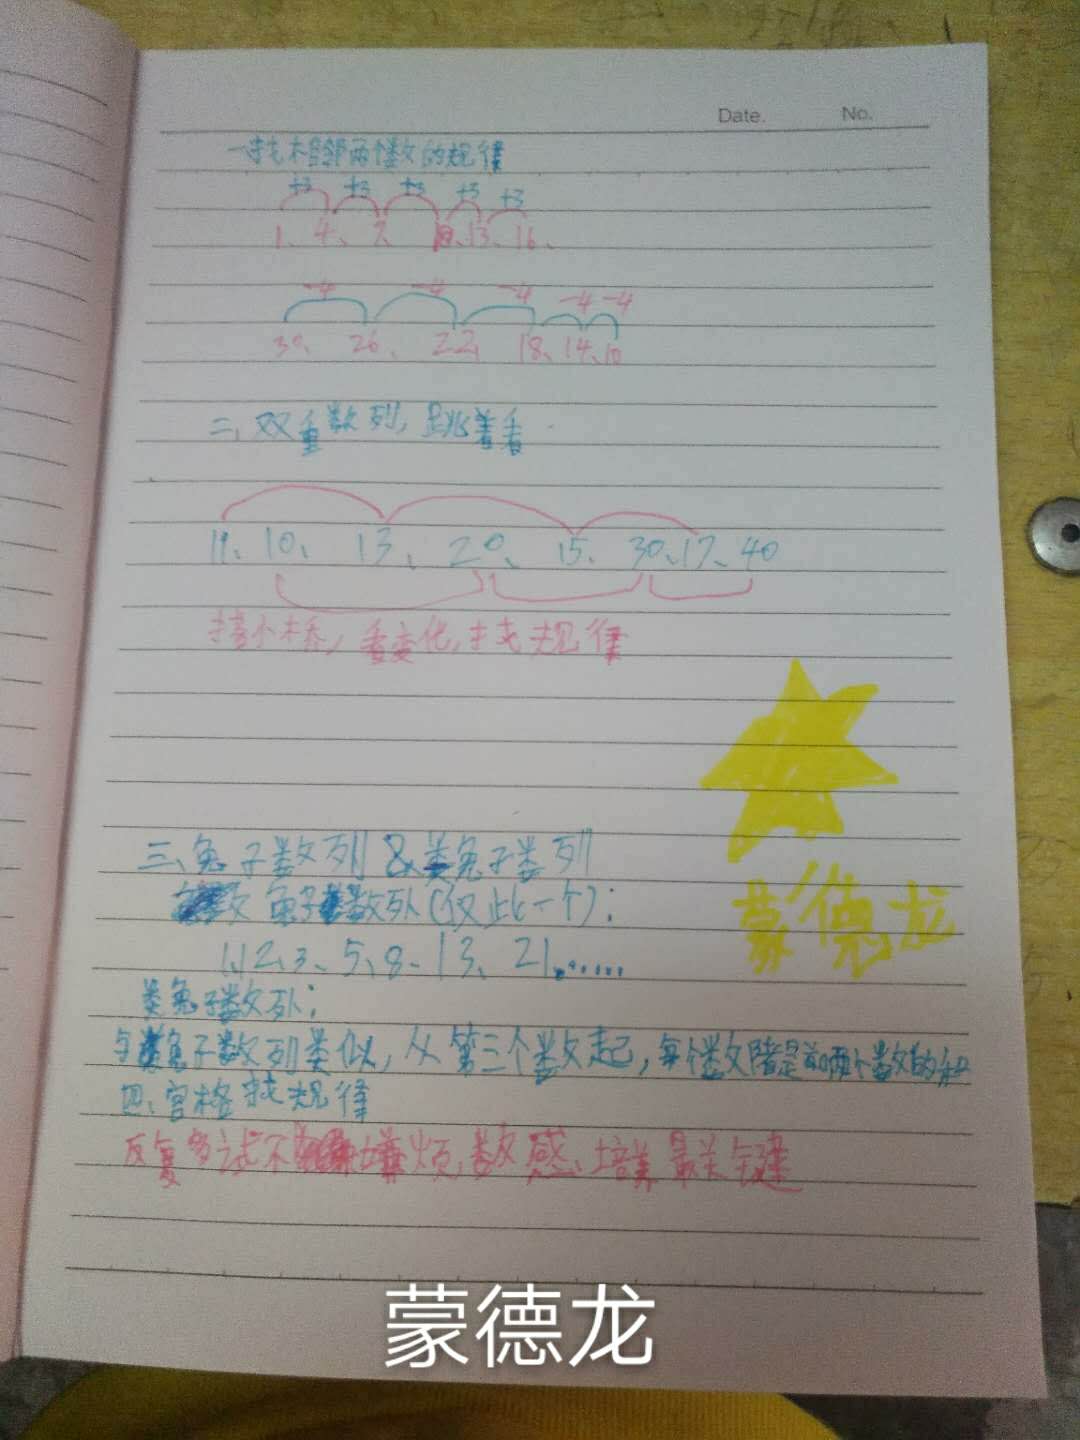 Date. No.
一、找相邻两个数的规律
+3 +3 +3 +3 +3
1、4、7、10、13、16、
-4 -4 -4 -4 -4
30、26、22、18、14、10
二、双重数列，跳着看
11、10、13、20、15、30、17、40
搭小桥，看变化，找规律
三、兔子数列&类兔子数列
兔子数列(仅此一个)：
1、1、2、3、5、8、13、21……
类兔子数列：
与兔子数列类似，从第三个数起，每个数都是前两个数的和
四、宫格找规律
反复多试不嫌烦，数感、培养最关键
蒙德龙
蒙德龙